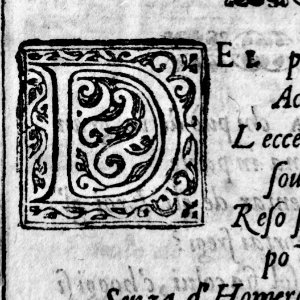 DEL p
Ac
L'ecce
ſou
Reſo ſ
po
Senza d' Homer